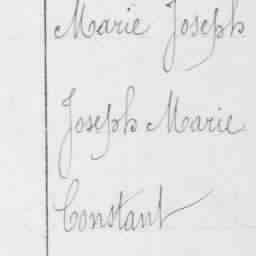 Marie Joseph
Joseph Marie
Constant